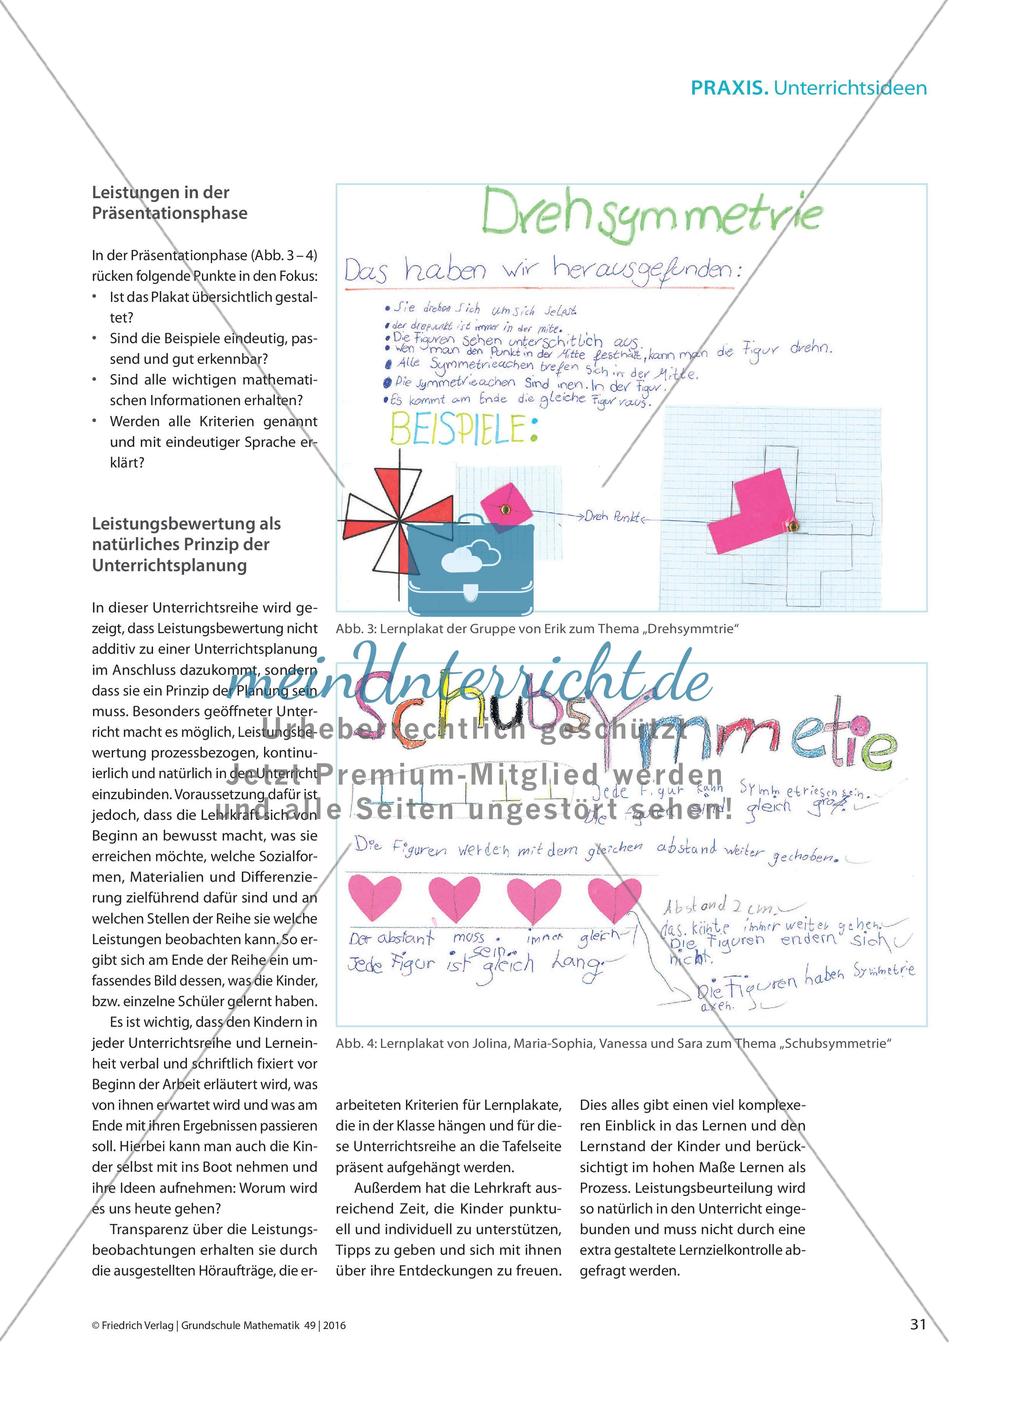 PRAXIS. Unterrichtsideen
Leistungen in der
Präsentationsphase
In der Präsentationphase (Abb. 3 – 4)
rücken folgende Punkte in den Fokus:
• Ist das Plakat übersichtlich gestal-
tet?
• Sind die Beispiele eindeutig, pas-
send und gut erkennbar?
• Sind alle wichtigen mathemati-
schen Informationen erhalten?
• Werden alle Kriterien genannt
und mit eindeutiger Sprache er-
klärt?
Leistungsbewertung als
natürliches Prinzip der
Unterrichtsplanung
In dieser Unterrichtsreihe wird ge-
zeigt, dass Leistungsbewertung nicht
additiv zu einer Unterrichtsplanung
im Anschluss dazukommt, sondern
dass sie ein Prinzip der Planung sein
muss. Besonders geöffneter Unter-
richt macht es möglich, Leistungsbe-
wertung prozessbezogen, kontinu-
ierlich und natürlich in den Unterricht
einzubinden. Voraussetzung dafür ist
jedoch, dass die Lehrkraft sich von
Beginn an bewusst macht, was sie
erreichen möchte, welche Sozialfor-
men, Materialien und Differenzie-
rung zielführend dafür sind und an
welchen Stellen der Reihe sie welche
Leistungen beobachten kann. So er-
gibt sich am Ende der Reihe ein um-
fassendes Bild dessen, was die Kinder,
bzw. einzelne Schüler gelernt haben.
Es ist wichtig, dass den Kindern in
jeder Unterrichtsreihe und Lernein-
heit verbal und schriftlich fixiert vor
Beginn der Arbeit erläutert wird, was
von ihnen erwartet wird und was am
Ende mit ihren Ergebnissen passieren
soll. Hierbei kann man auch die Kin-
der selbst mit ins Boot nehmen und
ihre Ideen aufnehmen: Worum wird
es uns heute gehen?
Transparenz über die Leistungs-
beobachtungen erhalten sie durch
die ausgestellten Höraufträge, die er-
Drehsymmetrie
Das haben wir herausgefunden:
• Sie drehen sich um sich selbst.
• der drepunkt ist immer in der mite.
• Die Figuren sehen unterschitlich aus.
• wen man den Punkt in der Mitte festhält, kann man die Figur drehn.
• Alle Symmetrieachen trefen sich in der Mitte.
• Die symmetrieachen sind inen. In der Figur.
• Es kommt am Ende die gleiche Figur raus.
BEISPIELE:
Dreh Punkt
Abb. 3: Lernplakat der Gruppe von Erik zum Thema „Drehsymmtrie“
meinUnterricht.de
Urheberrechtlich geschützt
Jetzt Premium-Mitglied werden
und alle Seiten ungestört sehen!
Schubsymmetie
Jede Figur kann Symmetriesch sein.
Die Figuren sind gleich groß.
Die Figuren werden mit dem gleichen abstand weiter geschoben.
Der abstant muss immer gleich
sein.
Jede Figur ist gleich Lang.
Abstand 2 cm.
das könte immer weiter gehen.
Die Figuren endern sich
nicht.
Die Figuren haben Symmetrie
axen.
Abb. 4: Lernplakat von Jolina, Maria-Sophia, Vanessa und Sara zum Thema „Schubsymmetrie“
arbeiteten Kriterien für Lernplakate,
die in der Klasse hängen und für die-
se Unterrichtsreihe an die Tafelseite
präsent aufgehängt werden.
Außerdem hat die Lehrkraft aus-
reichend Zeit, die Kinder punktu-
ell und individuell zu unterstützen,
Tipps zu geben und sich mit ihnen
über ihre Entdeckungen zu freuen.
Dies alles gibt einen viel komplexe-
ren Einblick in das Lernen und den
Lernstand der Kinder und berück-
sichtigt im hohen Maße Lernen als
Prozess. Leistungsbeurteilung wird
so natürlich in den Unterricht einge-
bunden und muss nicht durch eine
extra gestaltete Lernzielkontrolle ab-
gefragt werden.
© Friedrich Verlag | Grundschule Mathematik 49 | 2016
31